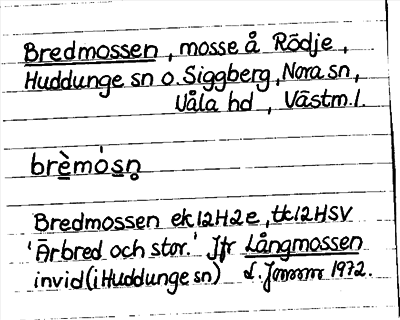 Bredmossen, mosse å Rödje,
Huddunge sn o. Siggberg, Nora sn,
Våla hd, Västm.l.
brèmósn̥
Bredmossen ek 12H2e, tk 12HSV
'Är bred och stor.' Jfr Långmossen
invid (i Huddunge sn) 1972.